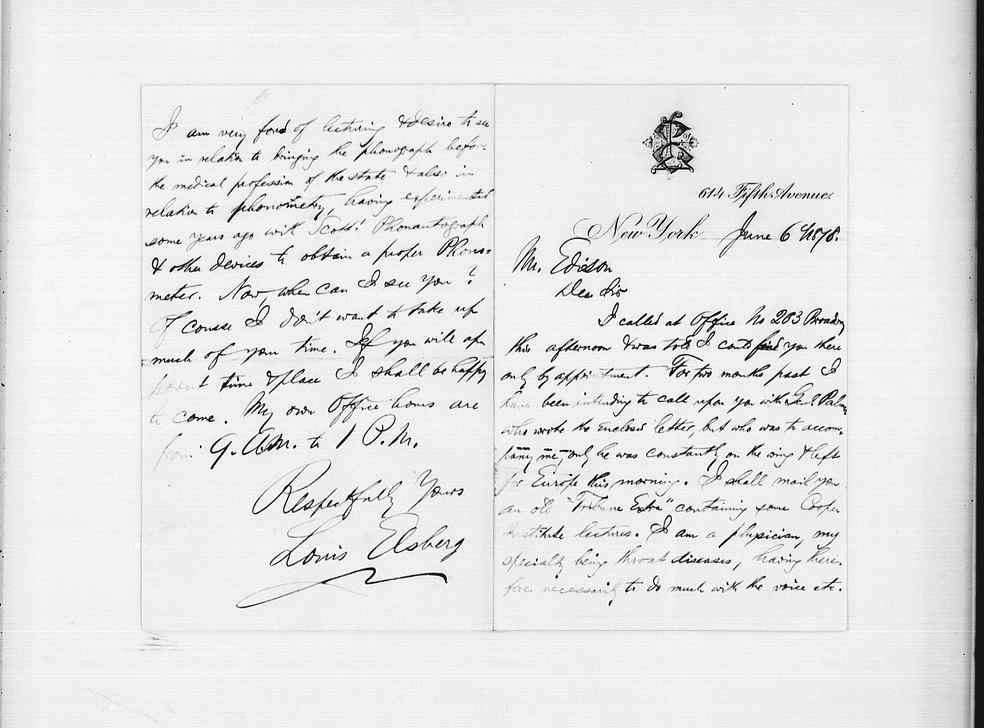 614 Fifth Avenue.
New York June 6th 1878.
Mr. Edison
Dear Sir
I called at Office No 203 Broadway
this afternoon & was told I could find you there
only by appointment. For two months past I
have been intending to call upon you with Palm
who wrote the enclosed letter, but who was to accom-
pany me - only he was constantly on the wing & left
for Europe this morning. I shall mail you
an old "Tribune Extra" containing some Cooper
Institute lectures. I am a physician, my
specialty being throat diseases, having there-
fore necessarily to do much with the voice etc.
I am very fond of lecturing & desire to see
you in relation to bringing the phonograph before
the medical profession of the state & also in
relation to phonometry, having experimented
some years ago with Scott's Phonautograph
& other devices to obtain a proper Phono-
meter. Now, when can I see you?
Of course I don't want to take up
much of your time. If you will ap
point time & place I shall be happy
to come. My own Office hours are
from 9. A.M. to 1 P.M.
Respectfully Yours
Louis Elsberg